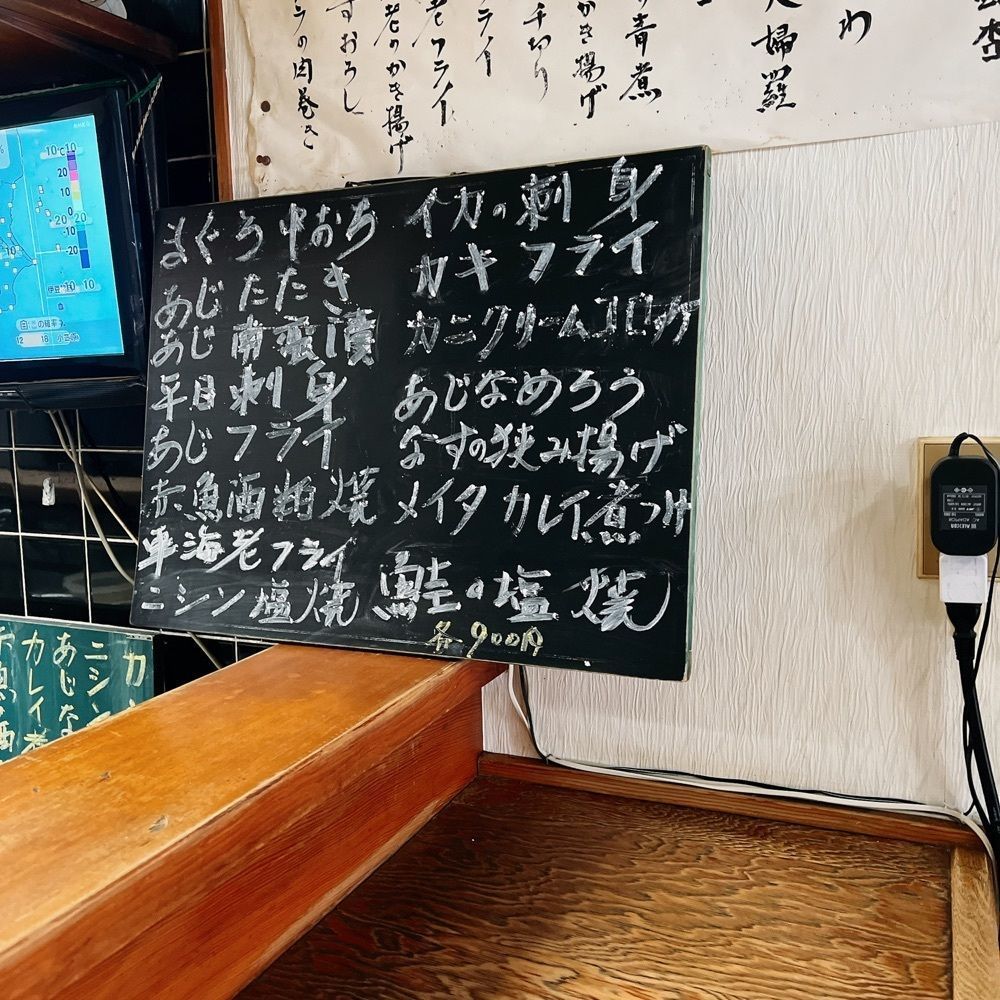 まぐろ中おち
あじたたき
あじ南蛮漬
平目刺身
あじフライ
赤魚酒粕焼
車海老フライ
ニシン塩焼
イカの刺身
カキフライ
カニクリームコロッケ
あじなめろう
なすの狭み揚げ
メイタカレイ煮つけ
鮭の塩焼
各900円
天婦羅
青煮
かき揚げ
千切り
フライ
老フライ
老のかき揚げ
すおろし
ラの肉巻き
カ
ニシン
あじな
カレイ煮
赤魚酒